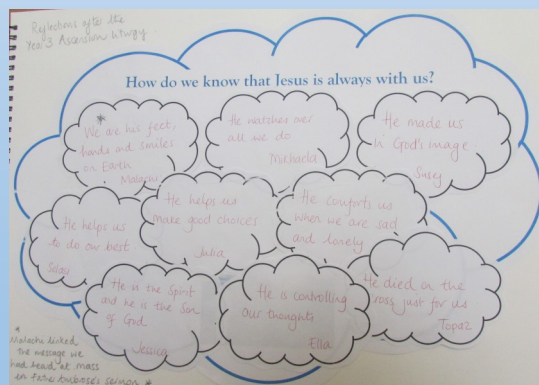 Reflections after the
Year 3 Ascension liturgy
How do we know that Jesus is always with us?
We are his feet,
hands and smiles
on Earth
Malachi
He watches over
all we do
Michaela
He made us
in God's image
Susy
He helps us
to do our best
He helps us
make good choices
Julia
He comforts us
when we are sad
and lonely
He is the Spirit
and he is the Son
of God
Jessica
He is controlling
our thoughts
Ella
He died on the
cross just for us
Topaz
*
Malachi linked
the message we
had read at mass
in Father
sermon *